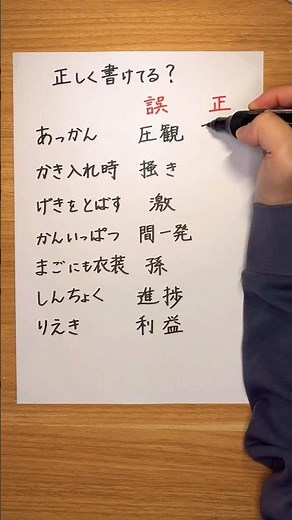 正しく書けてる？
誤 正
あっかん 圧観
かき入れ時 掻き
げきをとばす 激
かんいっぱつ 間一発
まごにも衣装 孫
しんちょく 進捗
りえき 利益